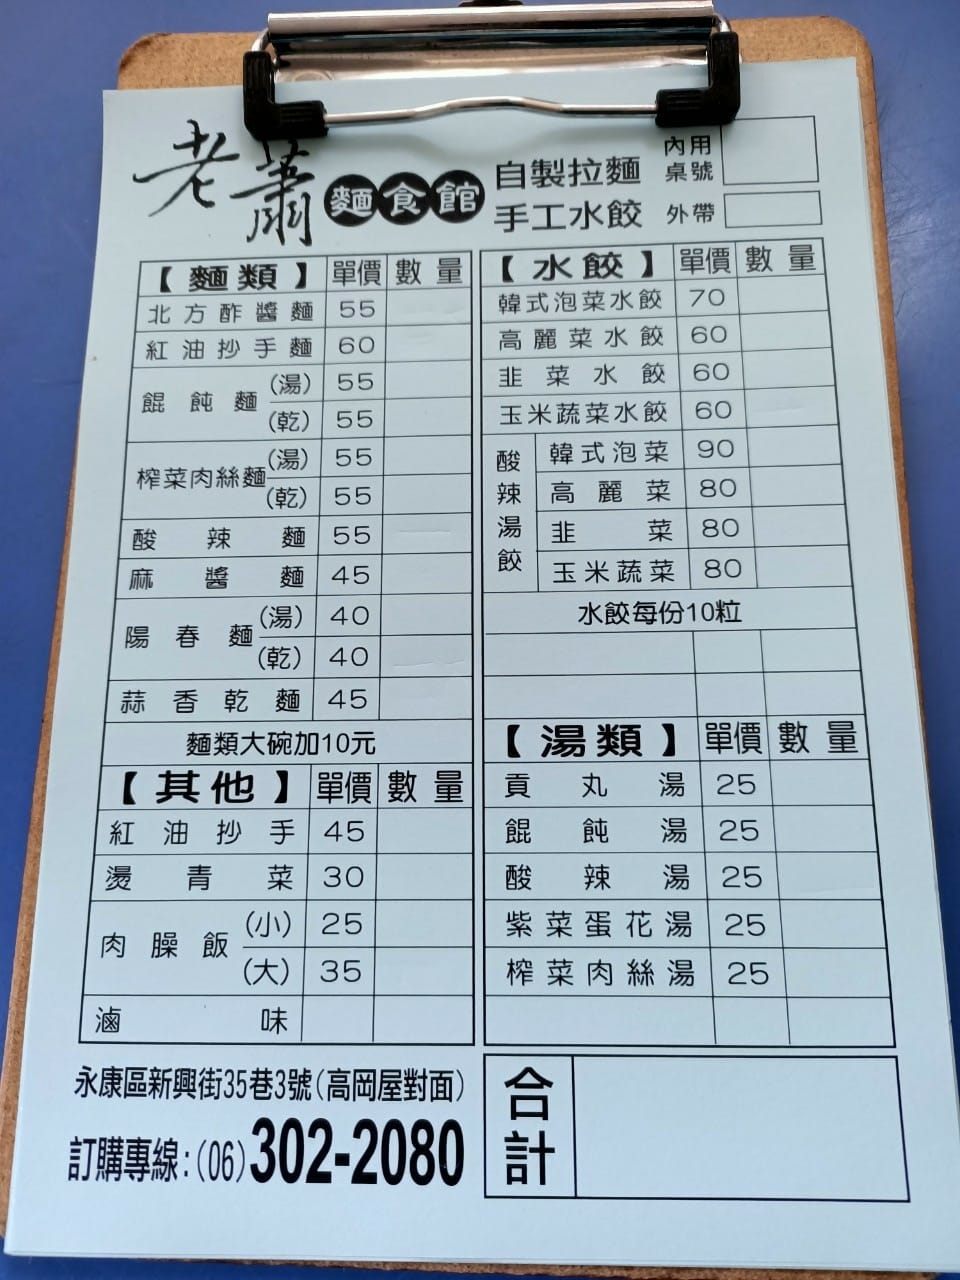 老蕭 麵食館
自製拉麵
手工水餃
內用
桌號
外帶
【麵類】 單價 數量
北方酢醬麵 55
紅油抄手麵 60
餛飩麵 (湯) 55
(乾) 55
榨菜肉絲麵 (湯) 55
(乾) 55
酸辣麵 55
麻醬麵 45
陽春麵 (湯) 40
(乾) 40
蒜香乾麵 45
麵類大碗加10元
【其他】 單價 數量
紅油抄手 45
燙青菜 30
肉臊飯 (小) 25
(大) 35
滷味
【水餃】 單價 數量
韓式泡菜水餃 70
高麗菜水餃 60
韭菜水餃 60
玉米蔬菜水餃 60
酸辣湯餃
韓式泡菜 90
高麗菜 80
韭菜 80
玉米蔬菜 80
水餃每份10粒
【湯類】 單價 數量
貢丸湯 25
餛飩湯 25
酸辣湯 25
紫菜蛋花湯 25
榨菜肉絲湯 25
永康區新興街35巷3號(高岡屋對面)
訂購專線:(06)302-2080
合計